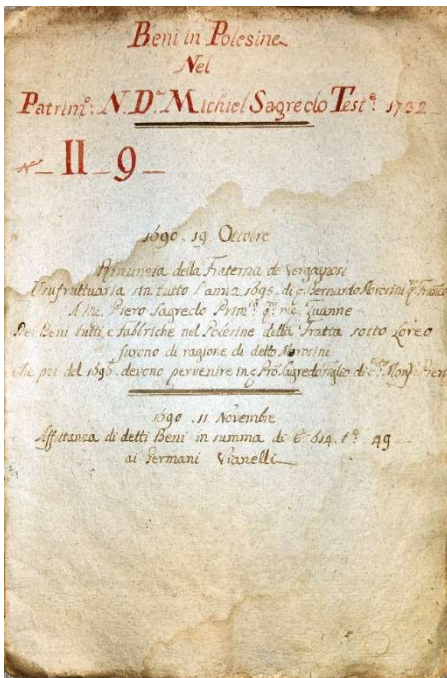 Beni in Polesine
Nel
Patrim.º: N. D.ª Michiel Sagredo Test.º: 1732
II 9
1690. 19. Ottobre
Rinuncia della Fraterna de Vergagnosi
Usufruttuaria in tutto l'anno 1695. di Bernardo Morosini
A me. Piero Sagredo Prim.º q.m Zuanne
Dei Beni tutti, e fabbriche nel Polesine della Fratta sotto Loreo
furono di ragione di detto Morosini
che poi del 1695. devono pervenire in Sagredo figlio di
1690. 11. Novembre
Affittanza di detti Beni in summa di 614. 49
ai Germani Vianelli